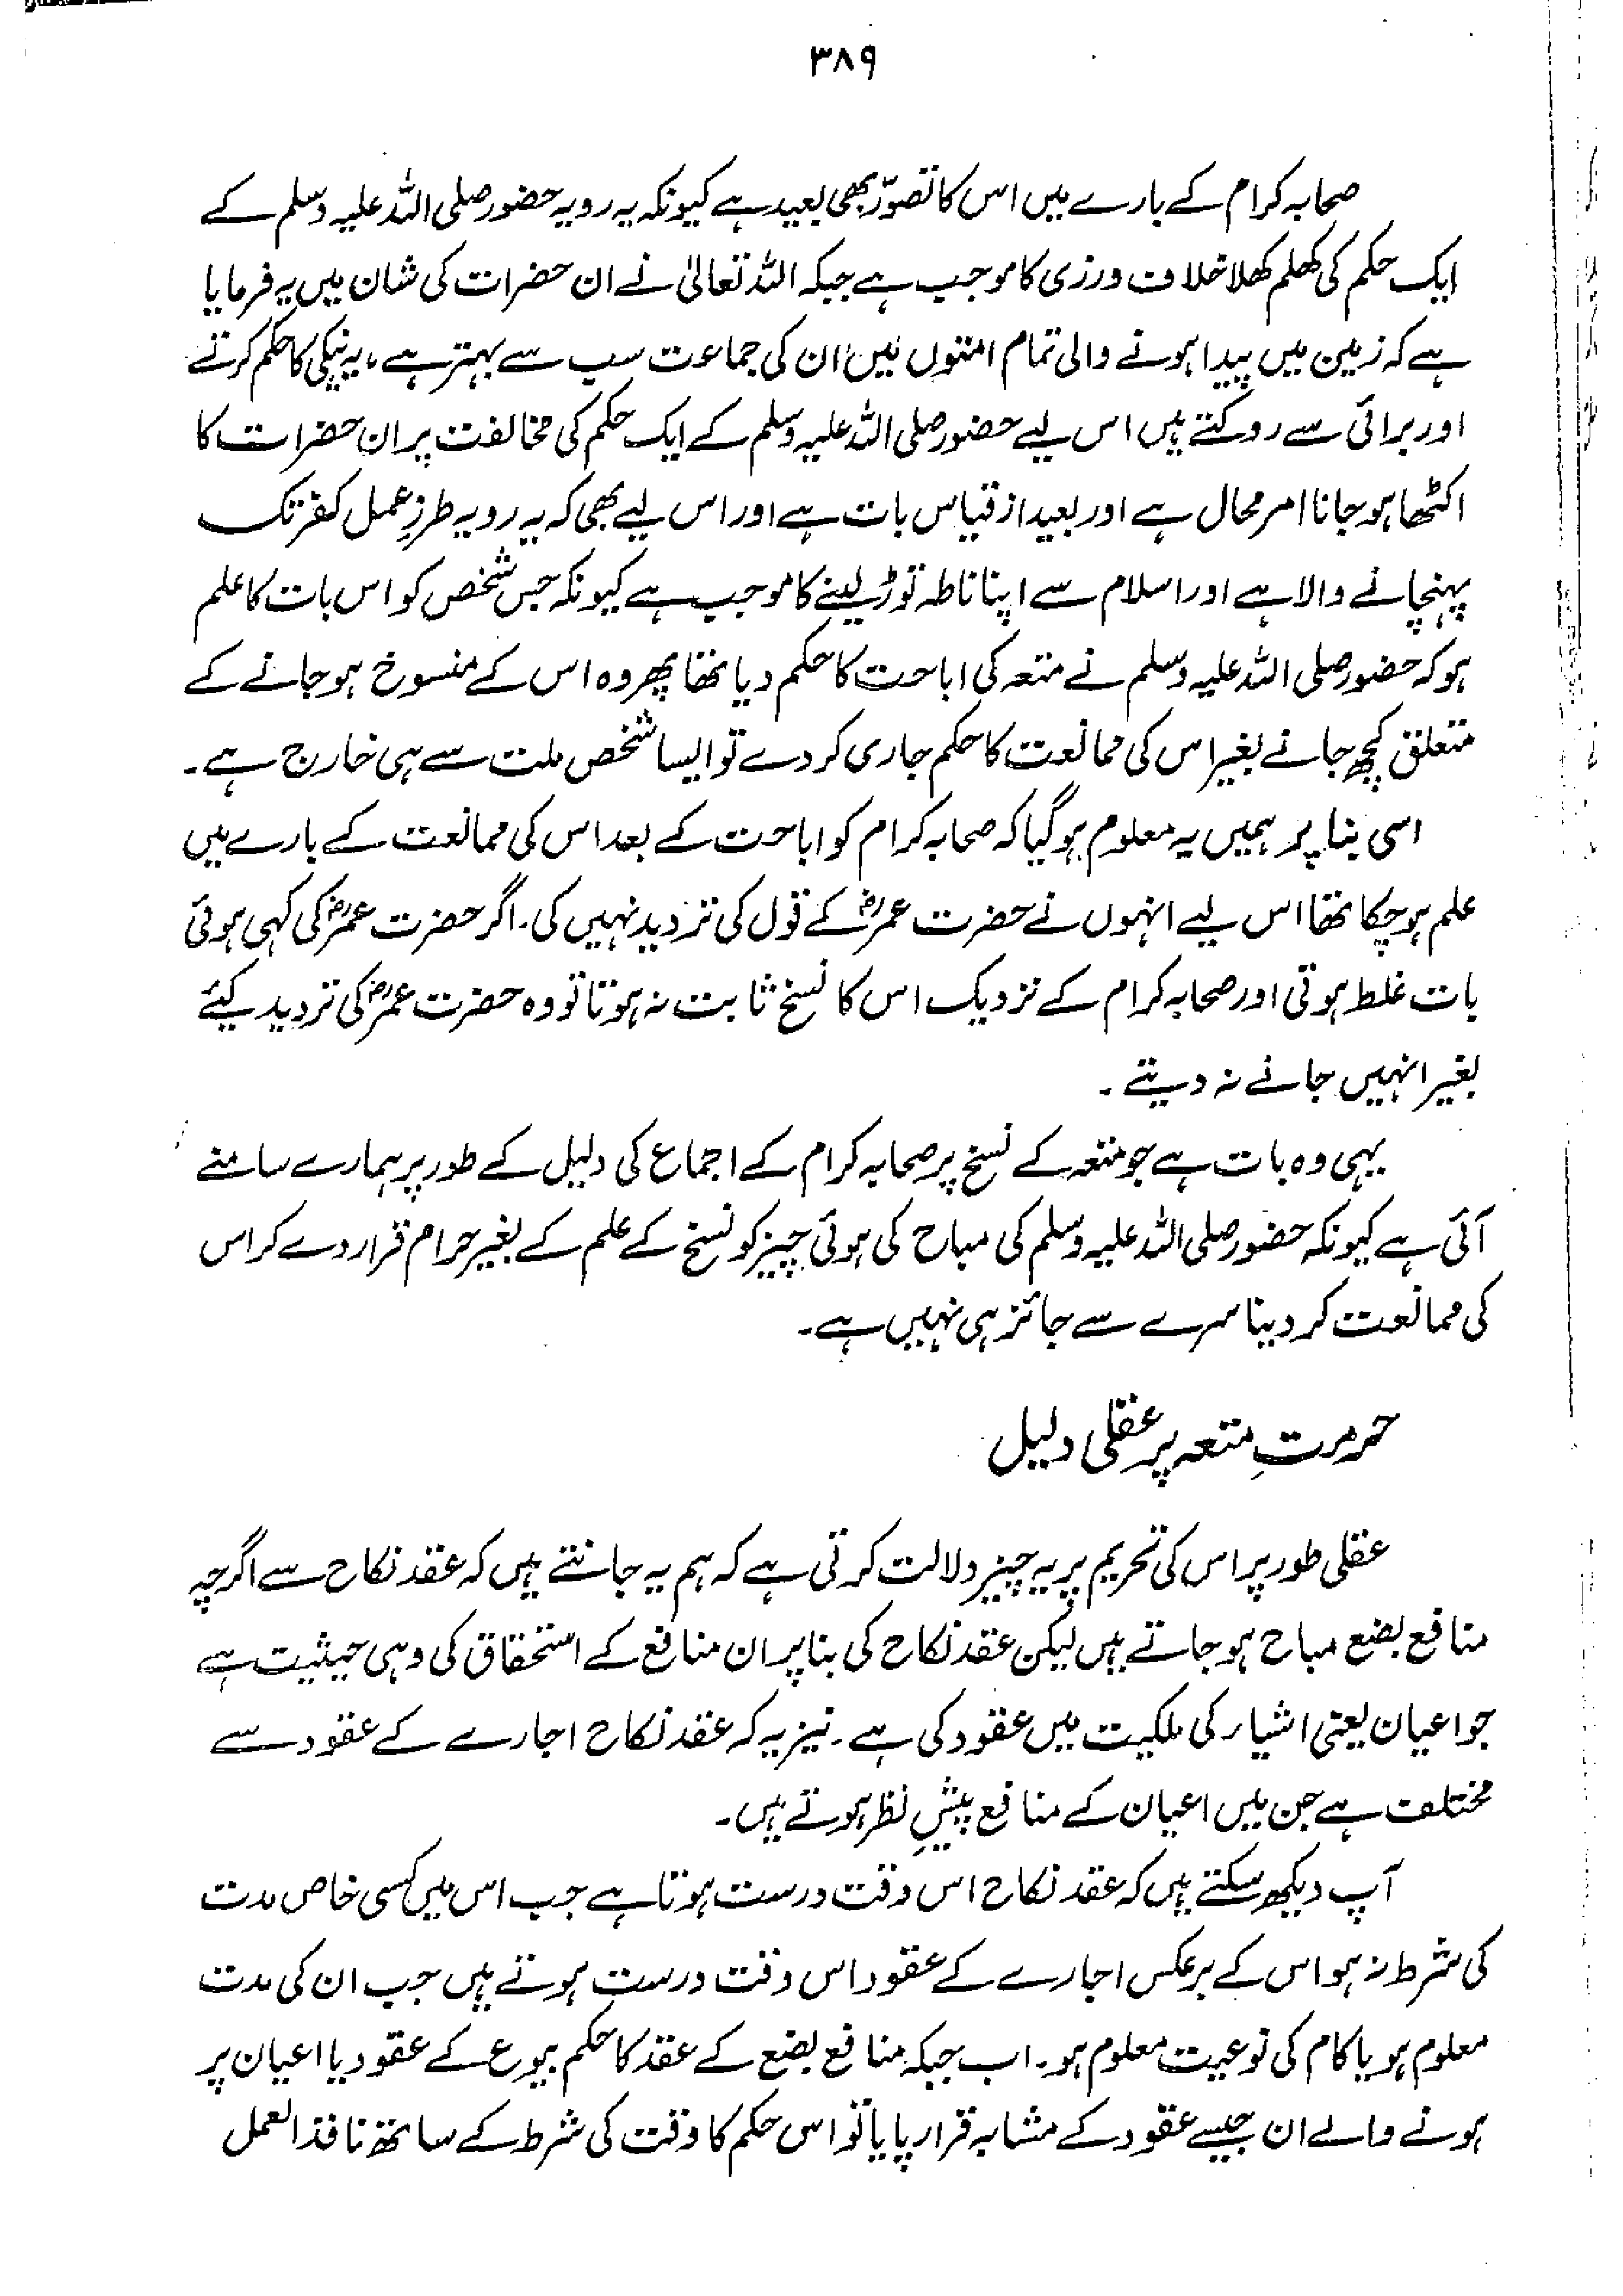 ۳۸۹
صحابہ کرام کے بارے میں اس کا تصوّر بھی بعید ہے کیونکہ یہ رویہ حضور صلی اللہ علیہ وسلم کے
ایک حکم کی کھلم کھلا خلاف ورزی کا موجب ہے جبکہ اللہ تعالیٰ نے ان حضرات کی شان میں یہ فرمایا
ہے کہ زمین میں پیدا ہونے والی تمام امتوں میں ان کی جماعت سب سے بہتر ہے، یہ نیکی کا حکم کرتے
اور برائی سے روکتے ہیں اس لیے حضور صلی اللہ علیہ وسلم کے ایک حکم کی مخالفت پر ان حضرات کا
اکٹھا ہو جانا امر محال ہے اور بعید از قیاس بات ہے اور اس لیے بھی کہ یہ رویہ طرزِ عمل کفر تک
پہنچانے والا ہے اور اسلام سے اپنا ناطہ توڑ لینے کا موجب ہے کیونکہ جس شخص کو اس بات کا علم
ہو کہ حضور صلی اللہ علیہ وسلم نے متعہ کی اباحت کا حکم دیا تھا پھر وہ اس کے منسوخ ہو جانے کے
متعلق کچھ جانے بغیر اس کی ممانعت کا حکم جاری کر دے تو ایسا شخص ملت سے ہی خارج ہے۔
اسی بنا پر ہمیں یہ معلوم ہو گیا کہ صحابہ کرام کو اباحت کے بعد اس کی ممانعت کے بارے میں
علم ہو چکا تھا اس لیے انہوں نے حضرت عمرؓ کے قول کی تردید نہیں کی۔ اگر حضرت عمرؓ کی کہی ہوئی
بات غلط ہوتی اور صحابہ کرام کے نزدیک اس کا نسخ ثابت نہ ہوتا تو وہ حضرت عمرؓ کی تردید کیئے
بغیر انہیں جانے نہ دیتے۔
یہی وہ بات ہے جو متعہ کے نسخ پر صحابہ کرام کے اجماع کی دلیل کے طور پر ہمارے سامنے
آئی ہے کیونکہ حضور صلی اللہ علیہ وسلم کی مباح کی ہوئی چیز کو نسخ کے علم کے بغیر حرام قرار دے کر اس
کی ممانعت کر دینا سرے سے جائز ہی نہیں ہے۔
حرمتِ متعہ پر عقلی دلیل
عقلی طور پر اس کی تحریم پر یہ چیز دلالت کرتی ہے کہ ہم یہ جانتے ہیں کہ عقد نکاح سے اگرچہ
منافع بضع مباح ہو جاتے ہیں لیکن عقد نکاح کی بنا پر ان منافع کے استحقاق کی وہی حیثیت ہے
جو اعیان یعنی اشیار کی ملکیت میں عقود کی ہے۔ نیز یہ کہ عقد نکاح اجارے کے عقود سے
مختلف ہے جن میں اعیان کے منافع پیشِ نظر ہوتے ہیں۔
آپ دیکھ سکتے ہیں کہ عقد نکاح اس وقت درست ہوتا ہے جب اس میں کسی خاص مدت
کی شرط نہ ہو اس کے برعکس اجارے کے عقود اس وقت درست ہوتے ہیں جب ان کی مدت
معلوم ہو یا کام کی نوعیت معلوم ہو۔ اب جبکہ منافع بضع کے عقد کا حکم بیوع کے عقود یا اعیان پر
ہونے والے ان جیسے عقود کے مشابہ قرار پایا تو اس حکم کا وقت کی شرط کے ساتھ نافذ العمل